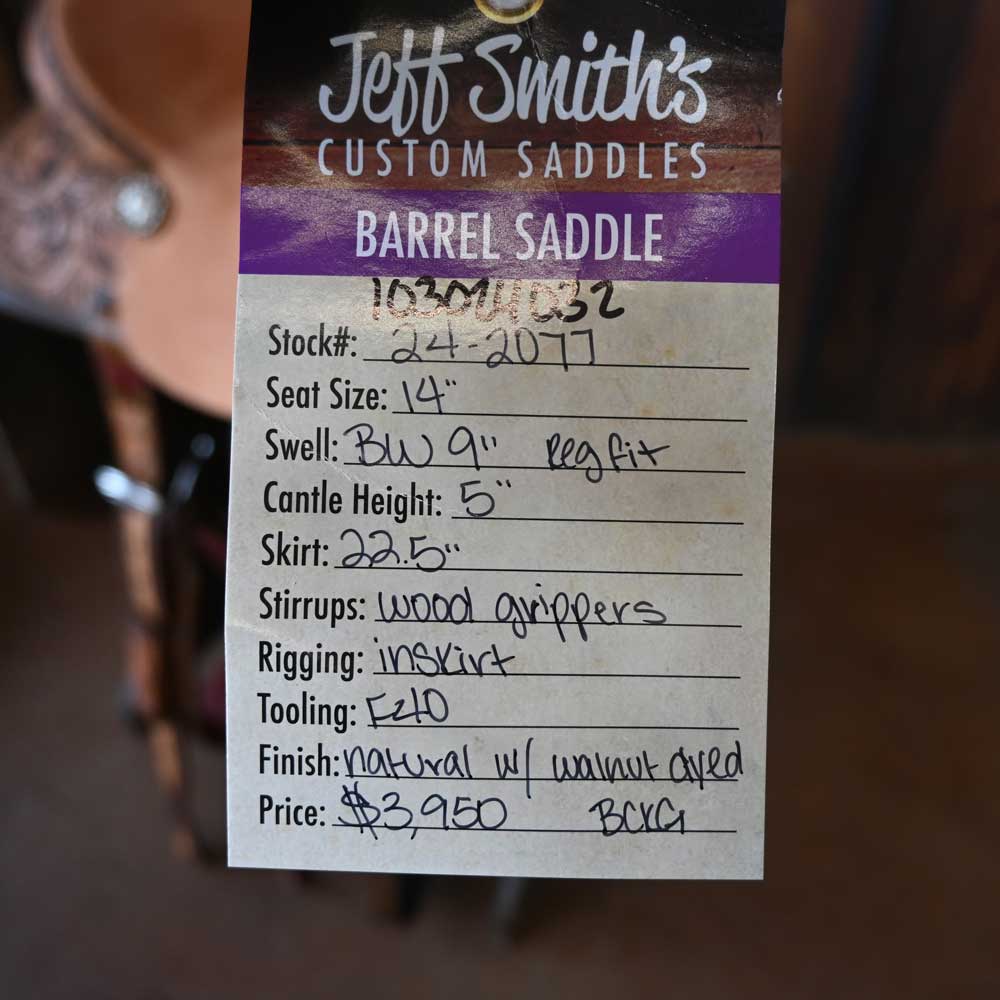 Jeff Smith's
CUSTOM SADDLES
BARREL SADDLE
Stock#: 24-2077
Seat Size: 14"
Swell: BW 9" Reg fit
Cantle Height: 5"
Skirt: 22.5"
Stirrups: wood grippers
Rigging: inskirt
Tooling:
Finish: natural w/ walnut dyed
Price: $3,950 BCKG